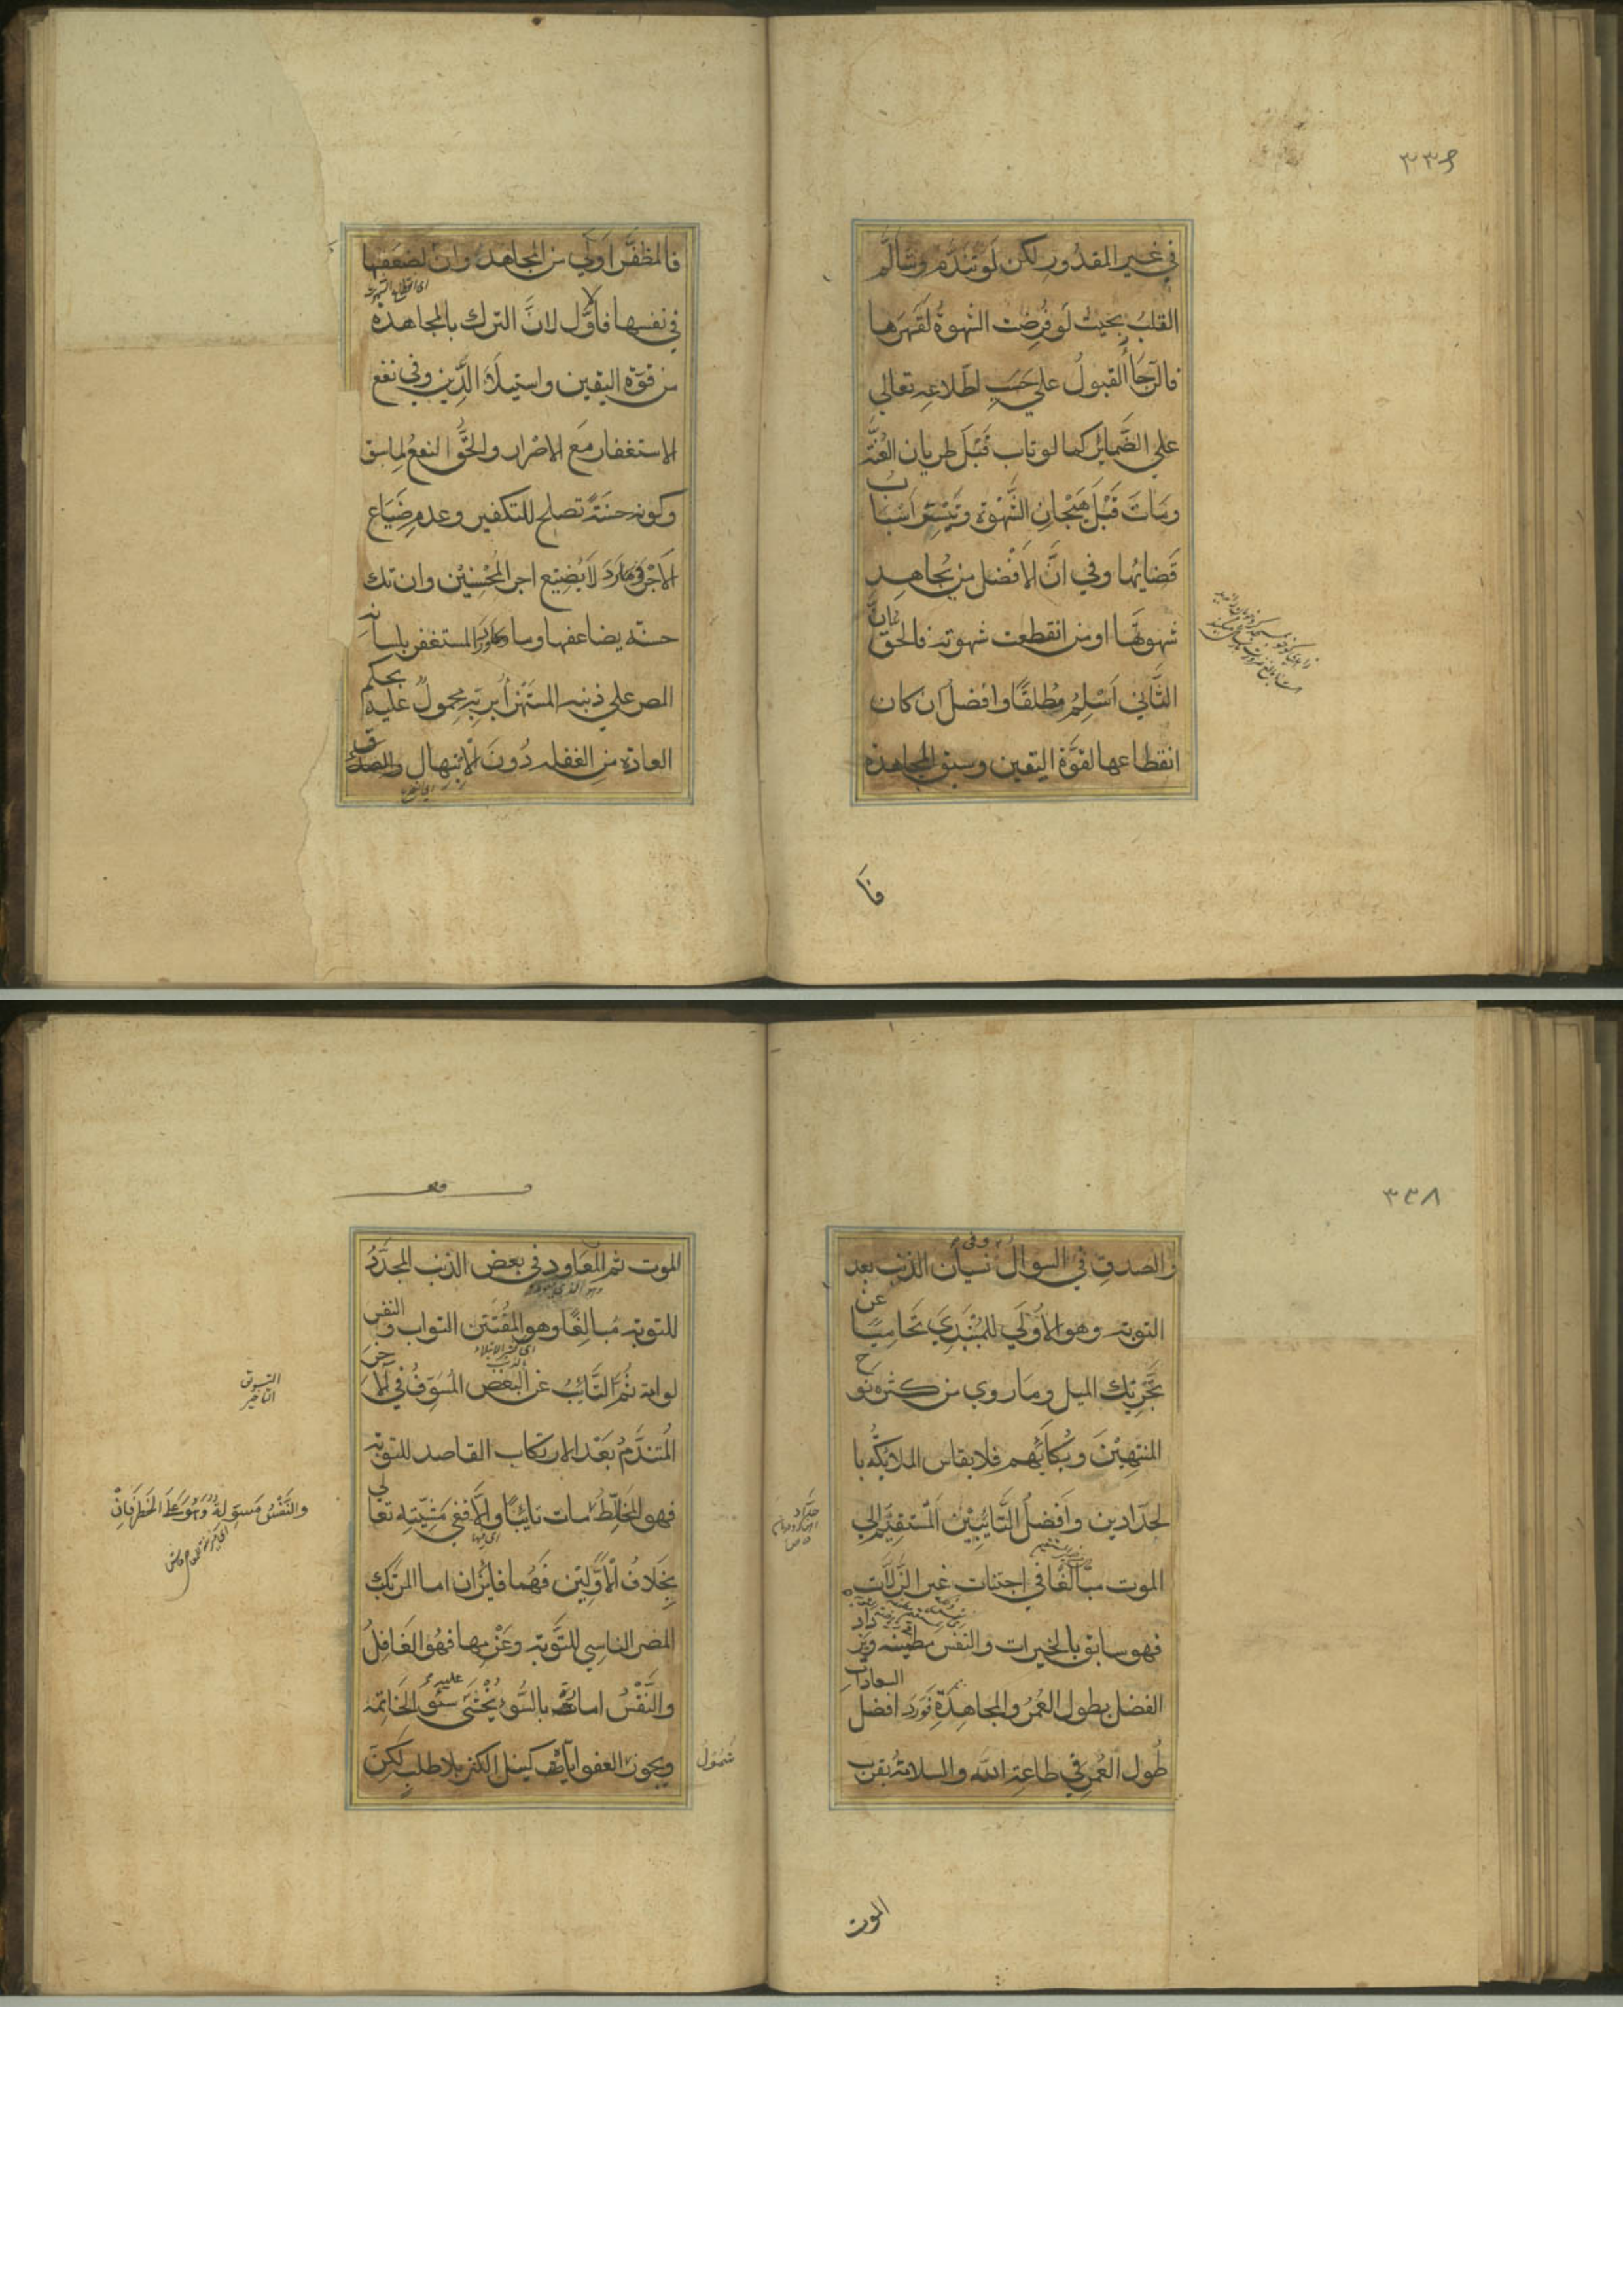 ٣٣٦
في غير المقدور لكن لو تندم وتألم
القلب بحيث لو فرضت الشهوة لقهرها
فالرجا القبول علي حسب اطلاعه تعالي
علي الضمائر كما لو تاب قبل طريان العنة
ومات قبل هيجان الشهوة وتيسر اسباب
قضائها وفي ان الافضل من يجاهد
شهوتها او من انقطعت شهوته فالحق ان
الثاني اسلم مطلقا وافضل ان كان
انقطاعها لقوة اليقين وسبق المجاهدة
فا
فالمظفر اولي من المجاهد وان لضعفها
في نفسها فالاول لان الترك بالمجاهدة
من قوة اليقين واستيلاء الدين وفي نفع
الاستغفار مع الاصرار والحق النفع لما سبق
وكونه حسنة تصلح للتكفير وعدم ضياع
الاجر فورد لا يضيع اجر المحسنين وان تك
حسنة يضاعفها وما ورد المستغفر بلسانه
المصر علي ذنبه المستهزأ بربه محمول عليه بحكم
العادة من الغفلة دون الابتهال والصدق
٣٣٨
والصدق في السوال وفي نسيان الذنب بعد
التوبة وهو الاولي للمبتدي تحاميا عن
تحريك الميل وما روي من كثرة نوح
المنتهين وبكائهم فلا يقاس الملائكة با
لحدادين وافضل التائبين المستقيم الي
الموت مبالغا في اجتناب غير الزلات
فهو سابق بالخيرات والنفس مطمئنة ويزداد
الفضل بطول العمر والمجاهدة فورد افضل السعادات
طول العمر في طاعة الله والسلامة بقرب
الموت
الموت ثم المعاود في بعض الذنب المجدد
للتوبة مبالغا وهو المفتتن التواب والنفس
لوامة ثم التائب عن البعض المسوف في الاخر
المتندم بعد الارتكاب القاصد للتوبة
فهو المخلط مات تائبا والا ففي مشيته تعالي
بخلاف الاولين فهما فائزان اما المرتكب
المصر الناسي للتوبة وعزمها فهو الغافل
والنفس امارة بالسوء يخشي عليه سوء الخاتمة
ويجوز العفو كنيل الكنز بلا طلب لكن
شمول
التسويف
التاخير
والنفس مسولة وهو علي الخطر فان